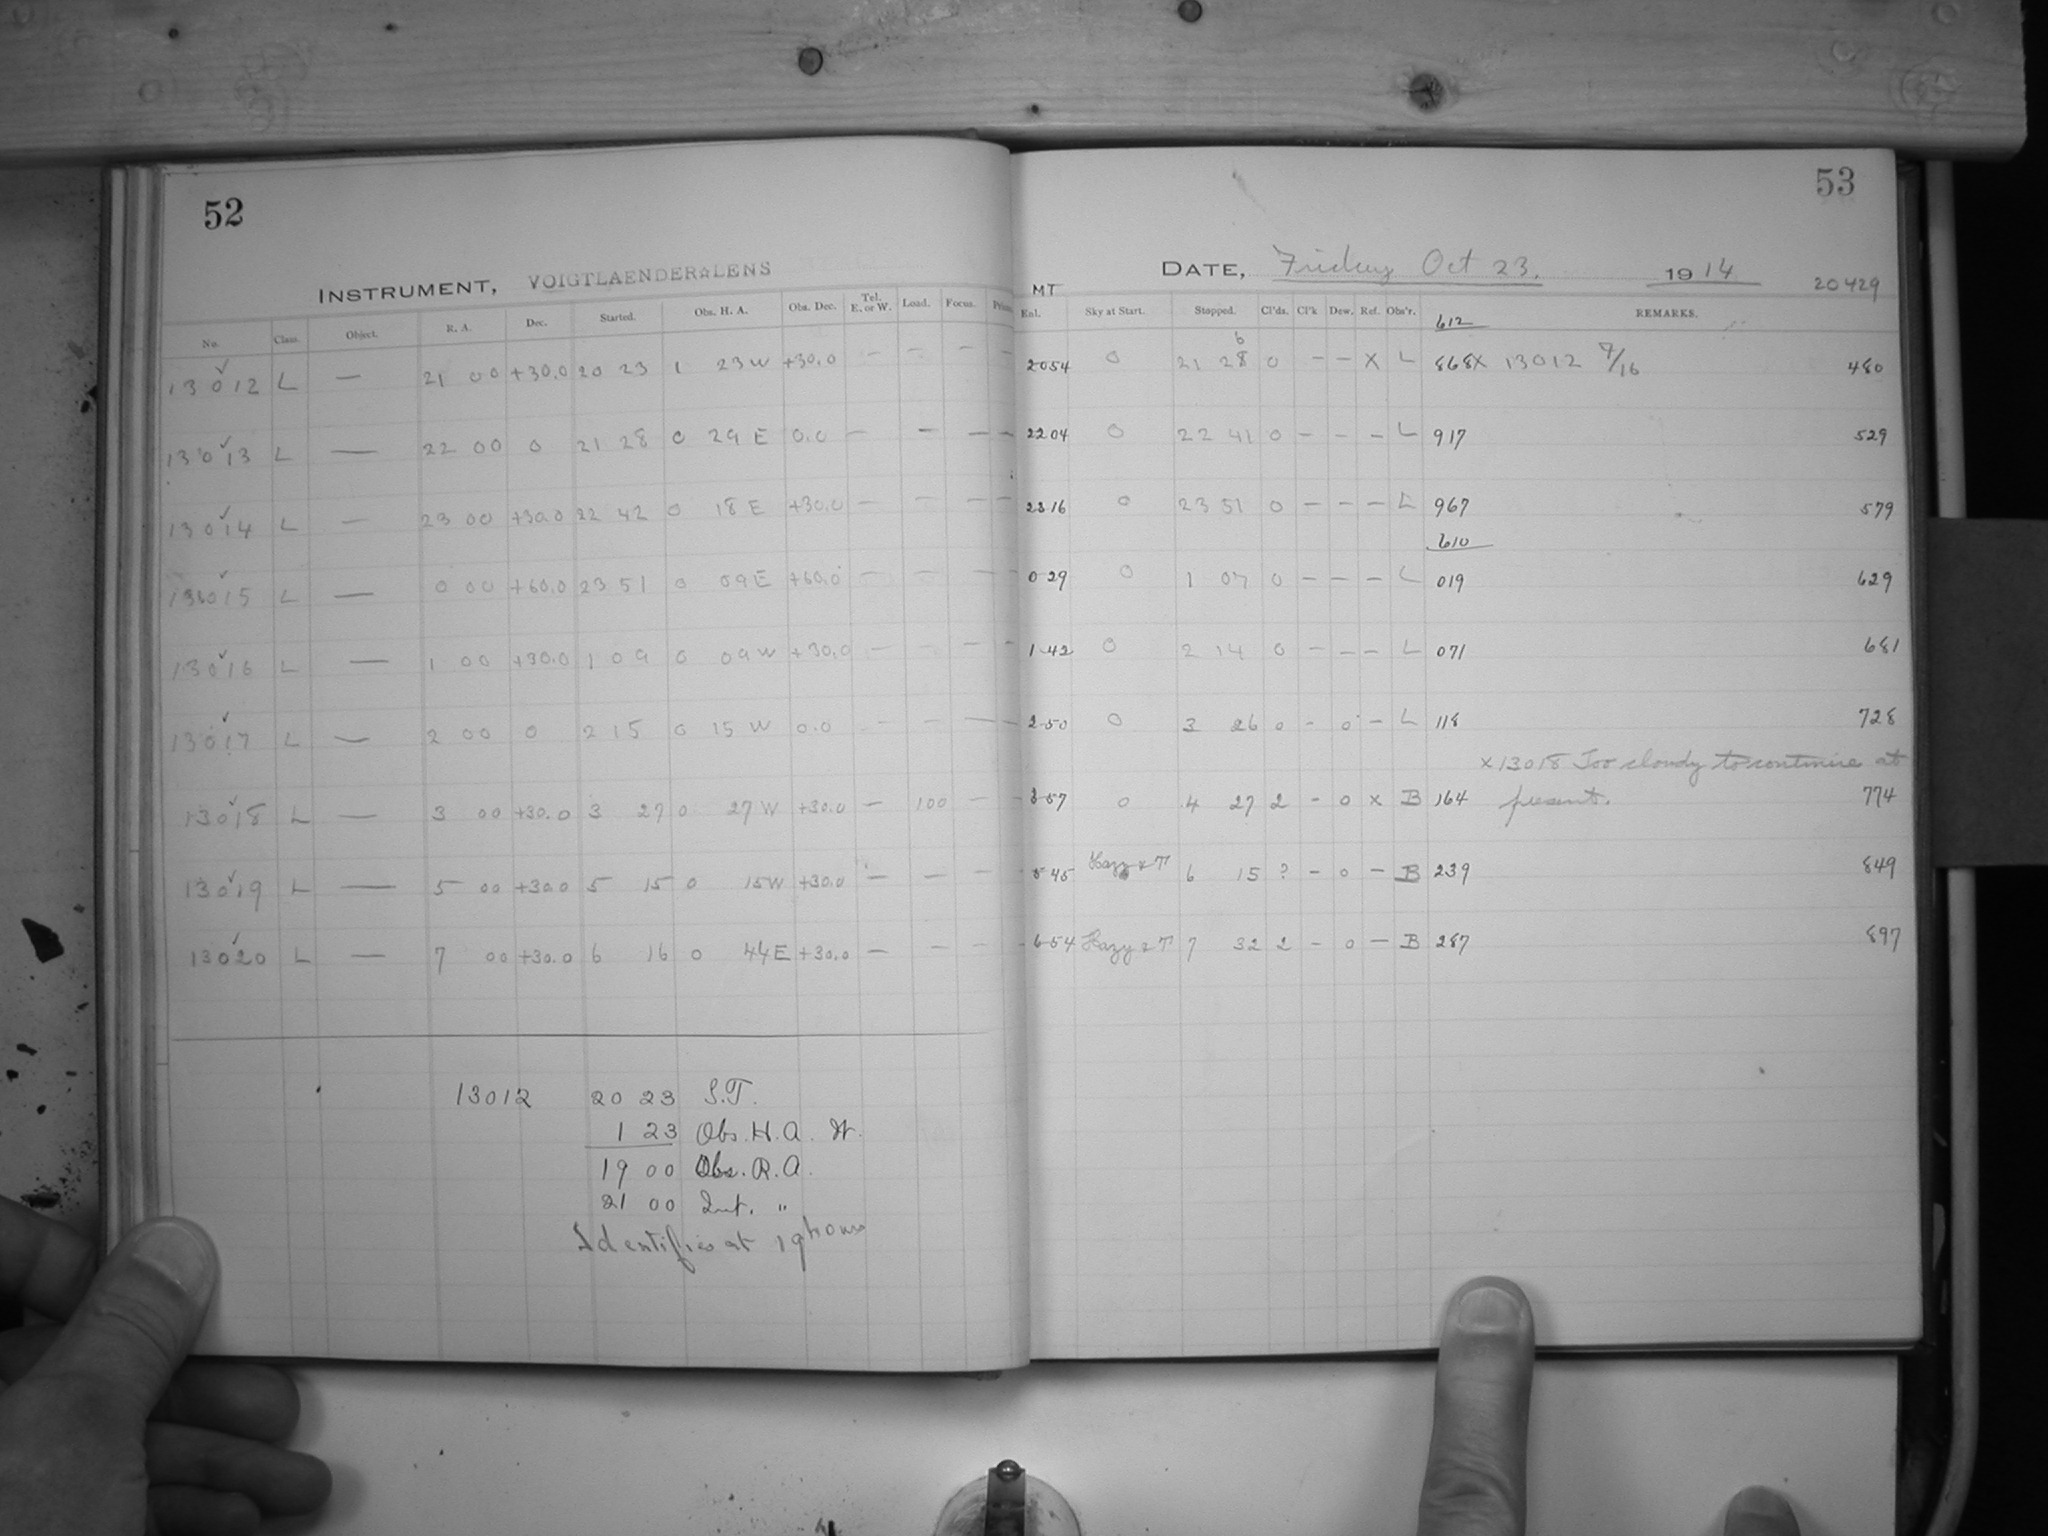 52
INSTRUMENT, VOIGTLAENDER LENS
No. Class. Object. R. A. Dec. Started. Obs. H. A. Obs. Dec. Tel. E. or W. Load. Focus.
13012 L — 21 00 +30.0 20 23 1 23 W +30.0 — — — —
13013 L — 22 00 0 21 28 0 29 E 0.0 — — — —
13014 L — 23 00 +30.0 22 42 0 18 E +30.0 — — — —
13015 L — 0 00 +60.0 23 51 0 09 E +60.0 — — — —
13016 L — 1 00 +30.0 1 09 0 09 W +30.0 — — — —
13017 L — 2 00 0 2 15 0 15 W 0.0 — — — —
13018 L — 3 00 +30.0 3 27 0 27 W +30.0 — 100 — —
13019 L — 5 00 +30.0 5 15 0 15 W +30.0 — — — —
13020 L — 7 00 +30.0 6 16 0 44 E +30.0 — — — —
13012 20 23 S.T.
1 23 Obs. H. A. W.
19 00 Obs. R. A.
21 00 Int. "
Identifies at 19 hours
53
DATE, Friday Oct 23. 1914
20429
MT
Sky at Start. Stopped. Cl'ds. Cl'k Dew. Ref. Obs'r. REMARKS.
612
2054 0 21 28 0 — — X L 868 X 13012 7/16 480
6
2204 0 22 41 0 — — — L 917 529
2316 0 23 51 0 — — — L 967 579
610
0 29 0 1 07 0 — — — L 019 629
1 42 0 2 14 0 — — — L 071 681
2 50 0 3 26 0 — 0 — L 118 728
X 13018 Too cloudy to continue at
3 57 0 4 27 2 — 0 X B 164 present. 774
5 45 Hazy & T 6 15 ? — 0 — B 239 849
6 54 Hazy & T 7 32 2 — 0 — B 287 897